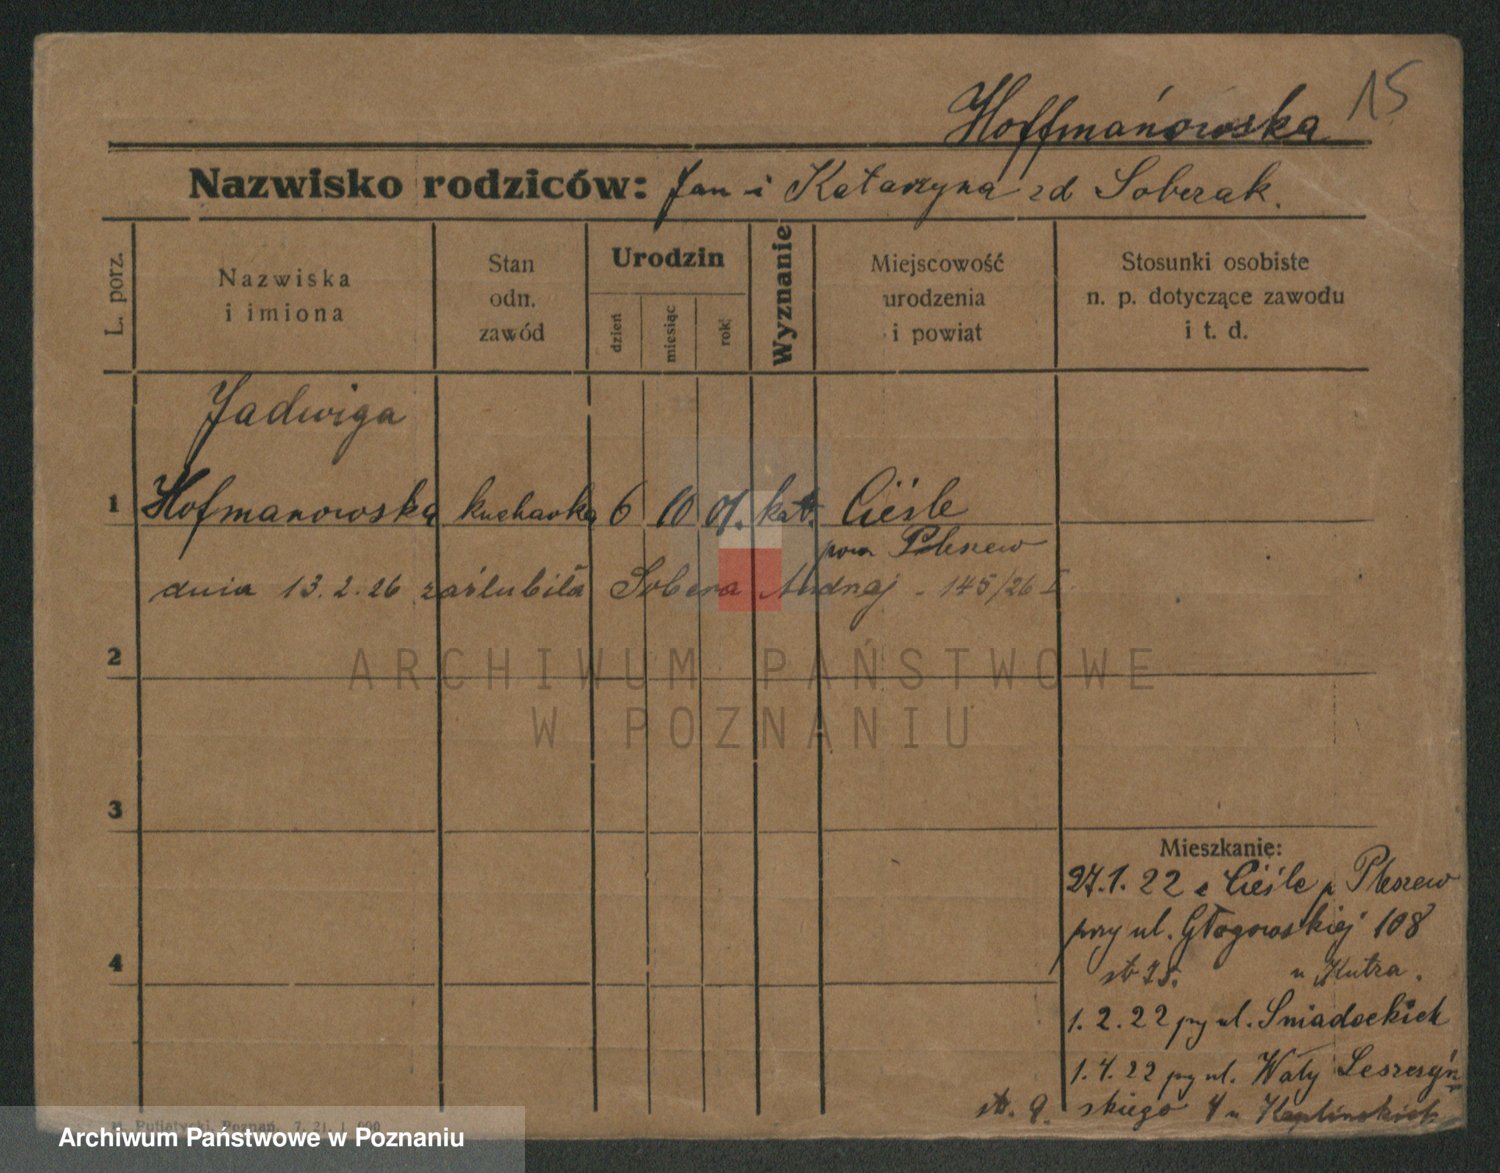 15
Hoffmańowska
Nazwisko rodziców: Jan i Katarzyna zd Soberak.
L. porz.
Nazwiska
i imiona
Stan
odn.
zawód
Urodzin
dzień
miesiąc
rok
Wyznanie
Miejscowość
urodzenia
i powiat
Stosunki osobiste
n. p. dotyczące zawodu
i t. d.
Jadwiga
1 Hofmanowska kucharka 6 10 01. kat. Cieśle
pow Pleszew
dnia 13.2.26 zaślubiła Sobera Andrzej - 145/26 I
2
ARCHIWUM PAŃSTWOWE
W POZNANIU
3
Mieszkanie:
27.1.22 z Cieśle p Pleszew
przy ul. Głogowskiej 108
u Kutza.
4
1.2.22 przy ul. Śniadeckich
1.4.22 przy ul. Wały Leszczyń
skiego 4 u Kaplinskich
Putiatycki, Poznań. 7. 21.
Archiwum Państwowe w Poznaniu